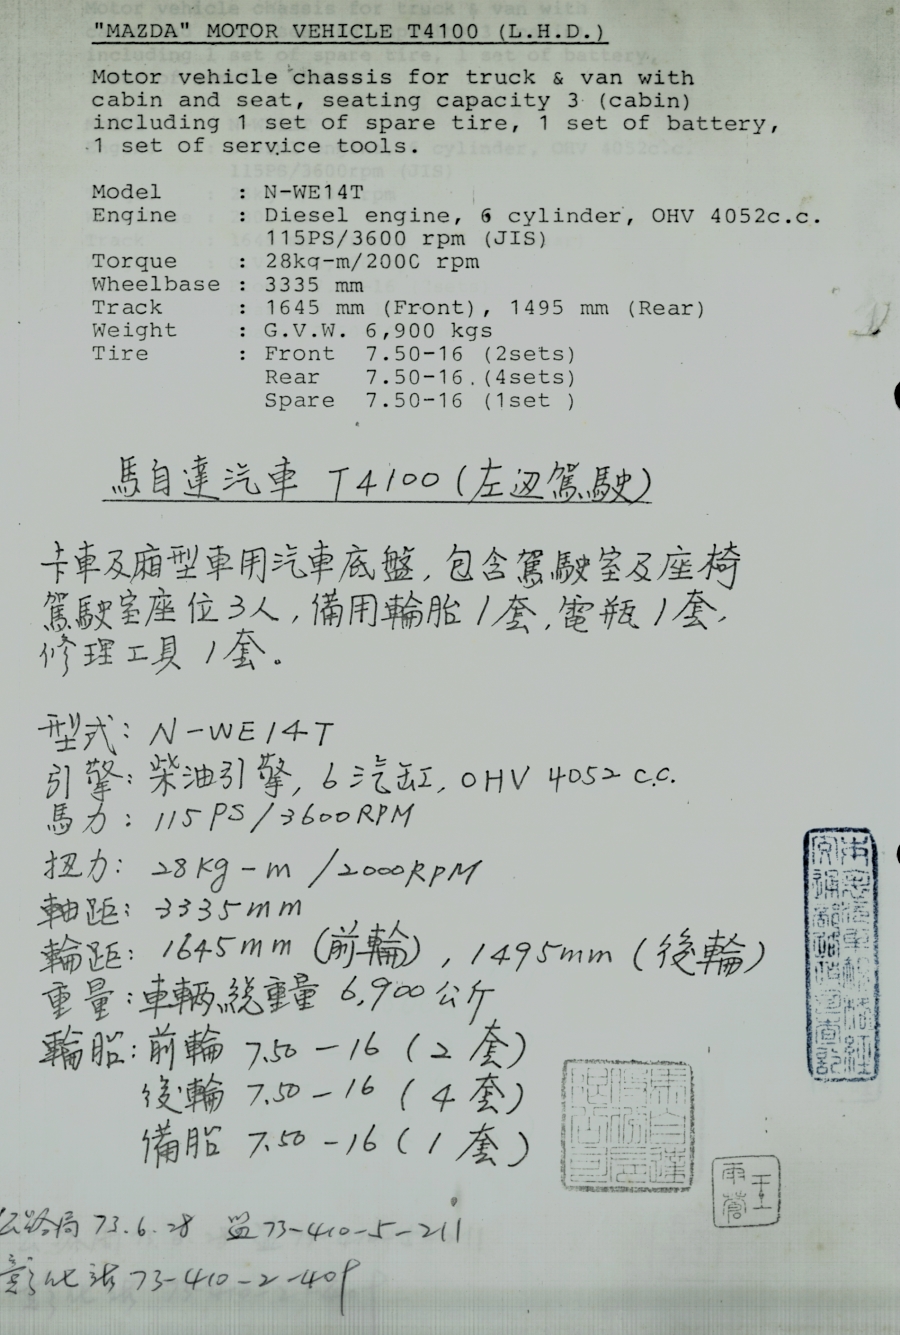 "MAZDA" MOTOR VEHICLE T4100 (L.H.D.)
Motor vehicle chassis for truck & van with
cabin and seat, seating capacity 3 (cabin)
including 1 set of spare tire, 1 set of battery,
1 set of service tools.
Model : N-WE14T
Engine : Diesel engine, 6 cylinder, OHV 4052c.c.
115PS/3600 rpm (JIS)
Torque : 28kg-m/2000 rpm
Wheelbase : 3335 mm
Track : 1645 mm (Front), 1495 mm (Rear)
Weight : G.V.W. 6,900 kgs
Tire : Front 7.50-16 (2sets)
Rear 7.50-16 (4sets)
Spare 7.50-16 (1set )
馬自達汽車 T4100(左边駕駛)
卡車及廂型車用汽車底盤,包含駕駛室及座椅
駕駛室座位3人,備用輪胎1套,電瓶1套,
修理工具1套。
型式: N-WE14T
引擎: 柴油引擎, 6汽缸, OHV 4052 c.c.
馬力: 115PS/3600RPM
扭力: 28Kg-m/2000RPM
軸距: 3335mm
輪距: 1645mm (前輪), 1495mm (後輪)
重量: 車輛總重量 6,900公斤
輪胎: 前輪 7.50-16 (2套)
後輪 7.50-16 (4套)
備胎 7.50-16 (1套)
公路局 73.6.28 監73-410-5-211
73-410-2-409